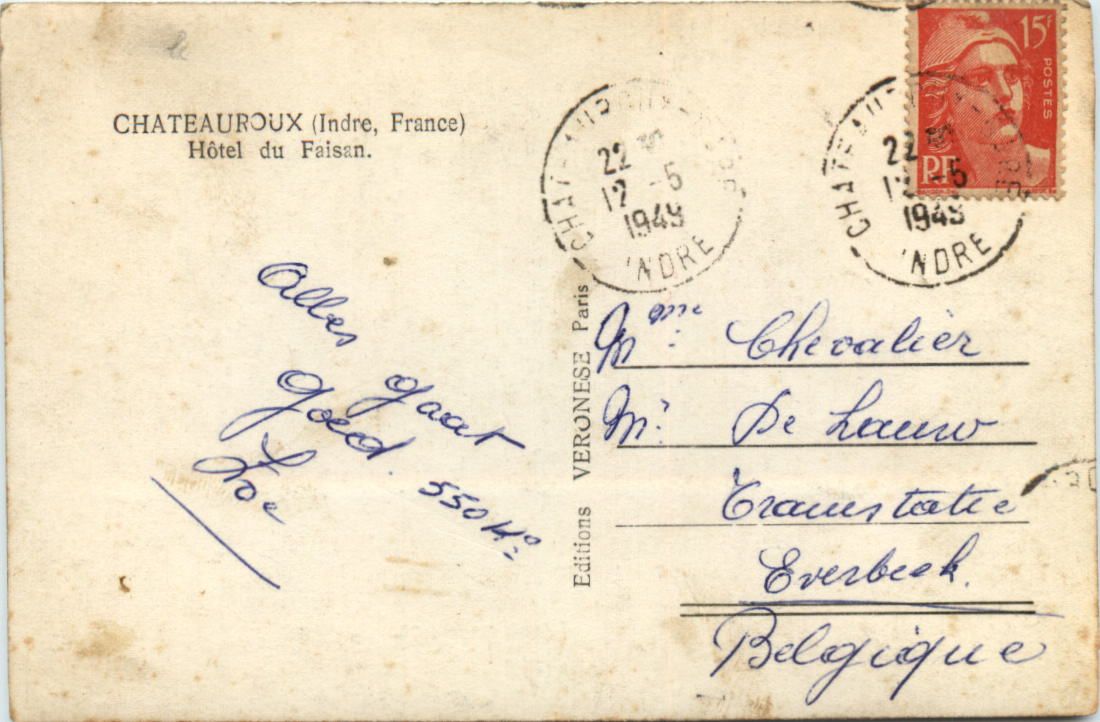 CHATEAUROUX (Indre, France)
Hôtel du Faisan.
Alles gaat
goed. 550 Ko
Editions VERONESE Paris
CHATEAUROUX
22
12 -5
1949
INDRE
15F
POSTES
RF
CHATEAUROUX
22
12 -5
1949
INDRE
Mme Chevalier
Mr De Lauw
Tramstatie
Everbeek.
Belgique